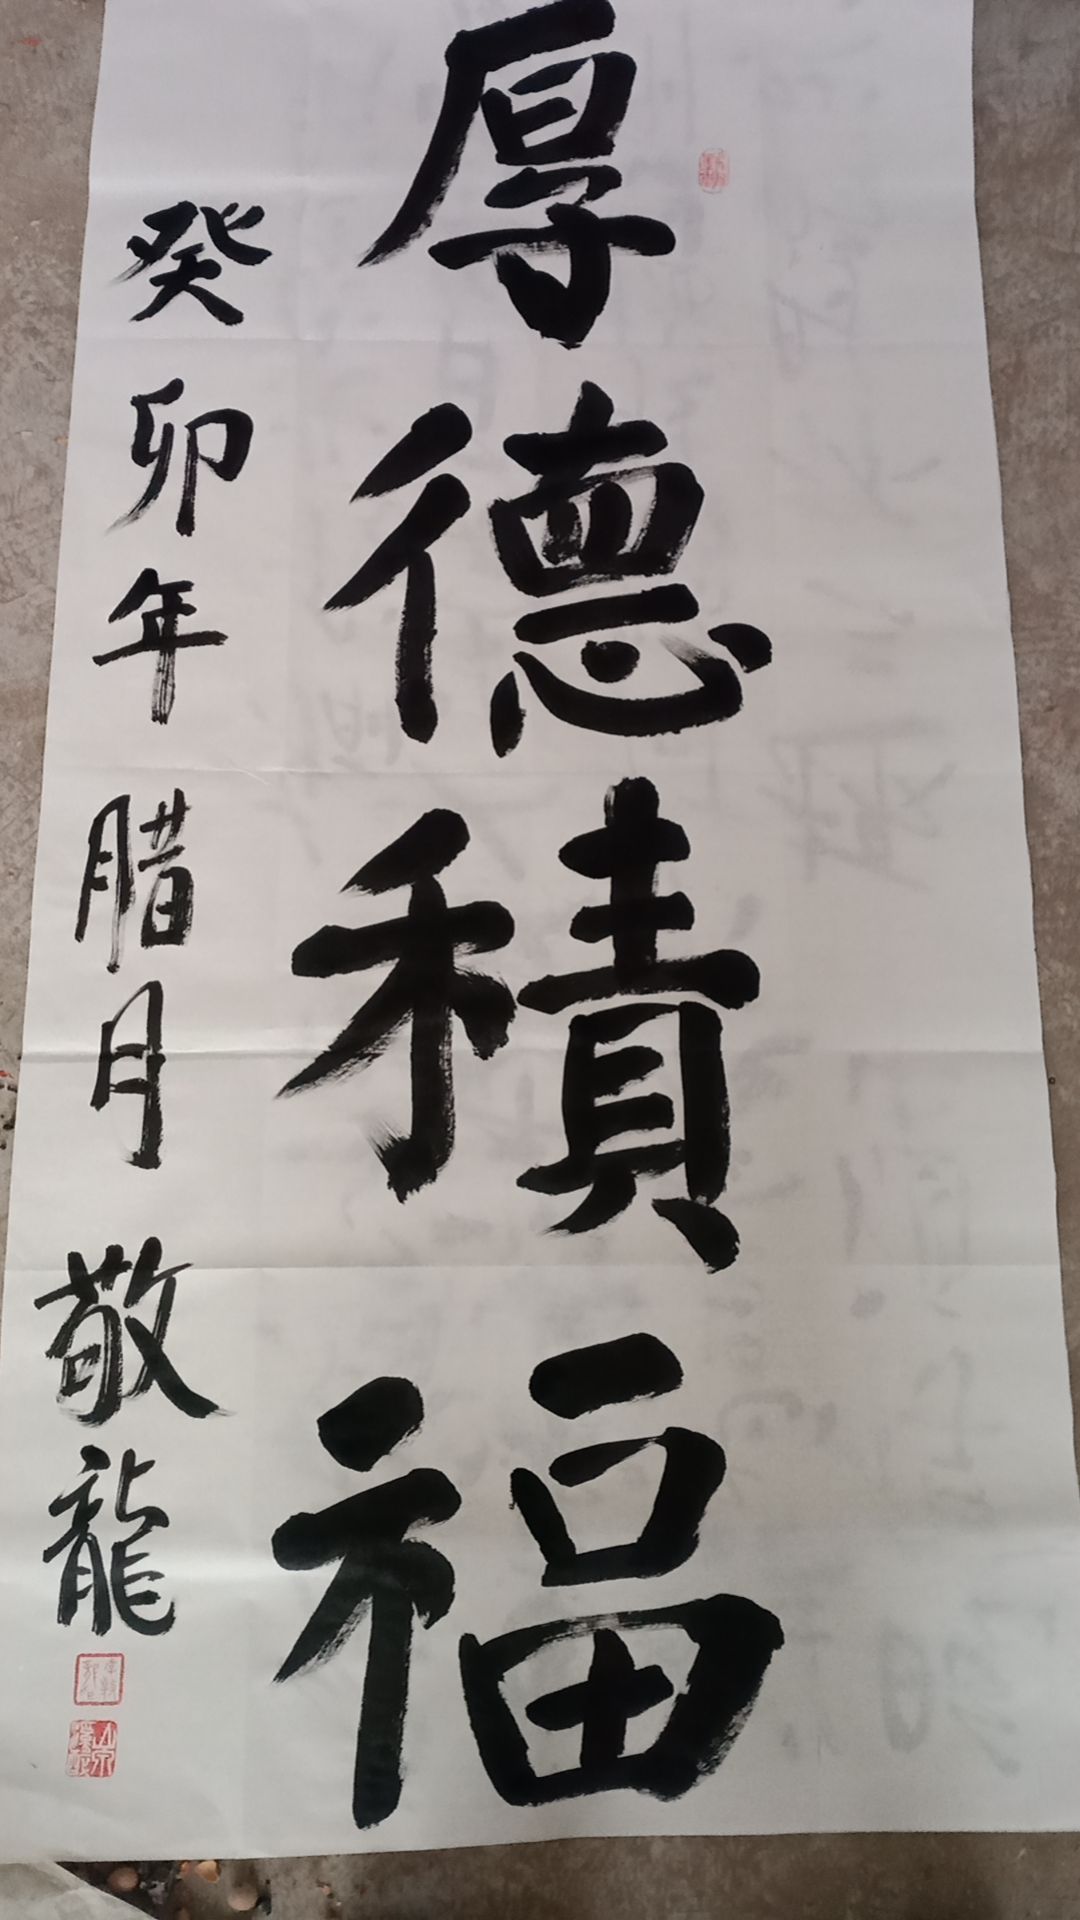 厚德積福
癸卯年腊月敬龍